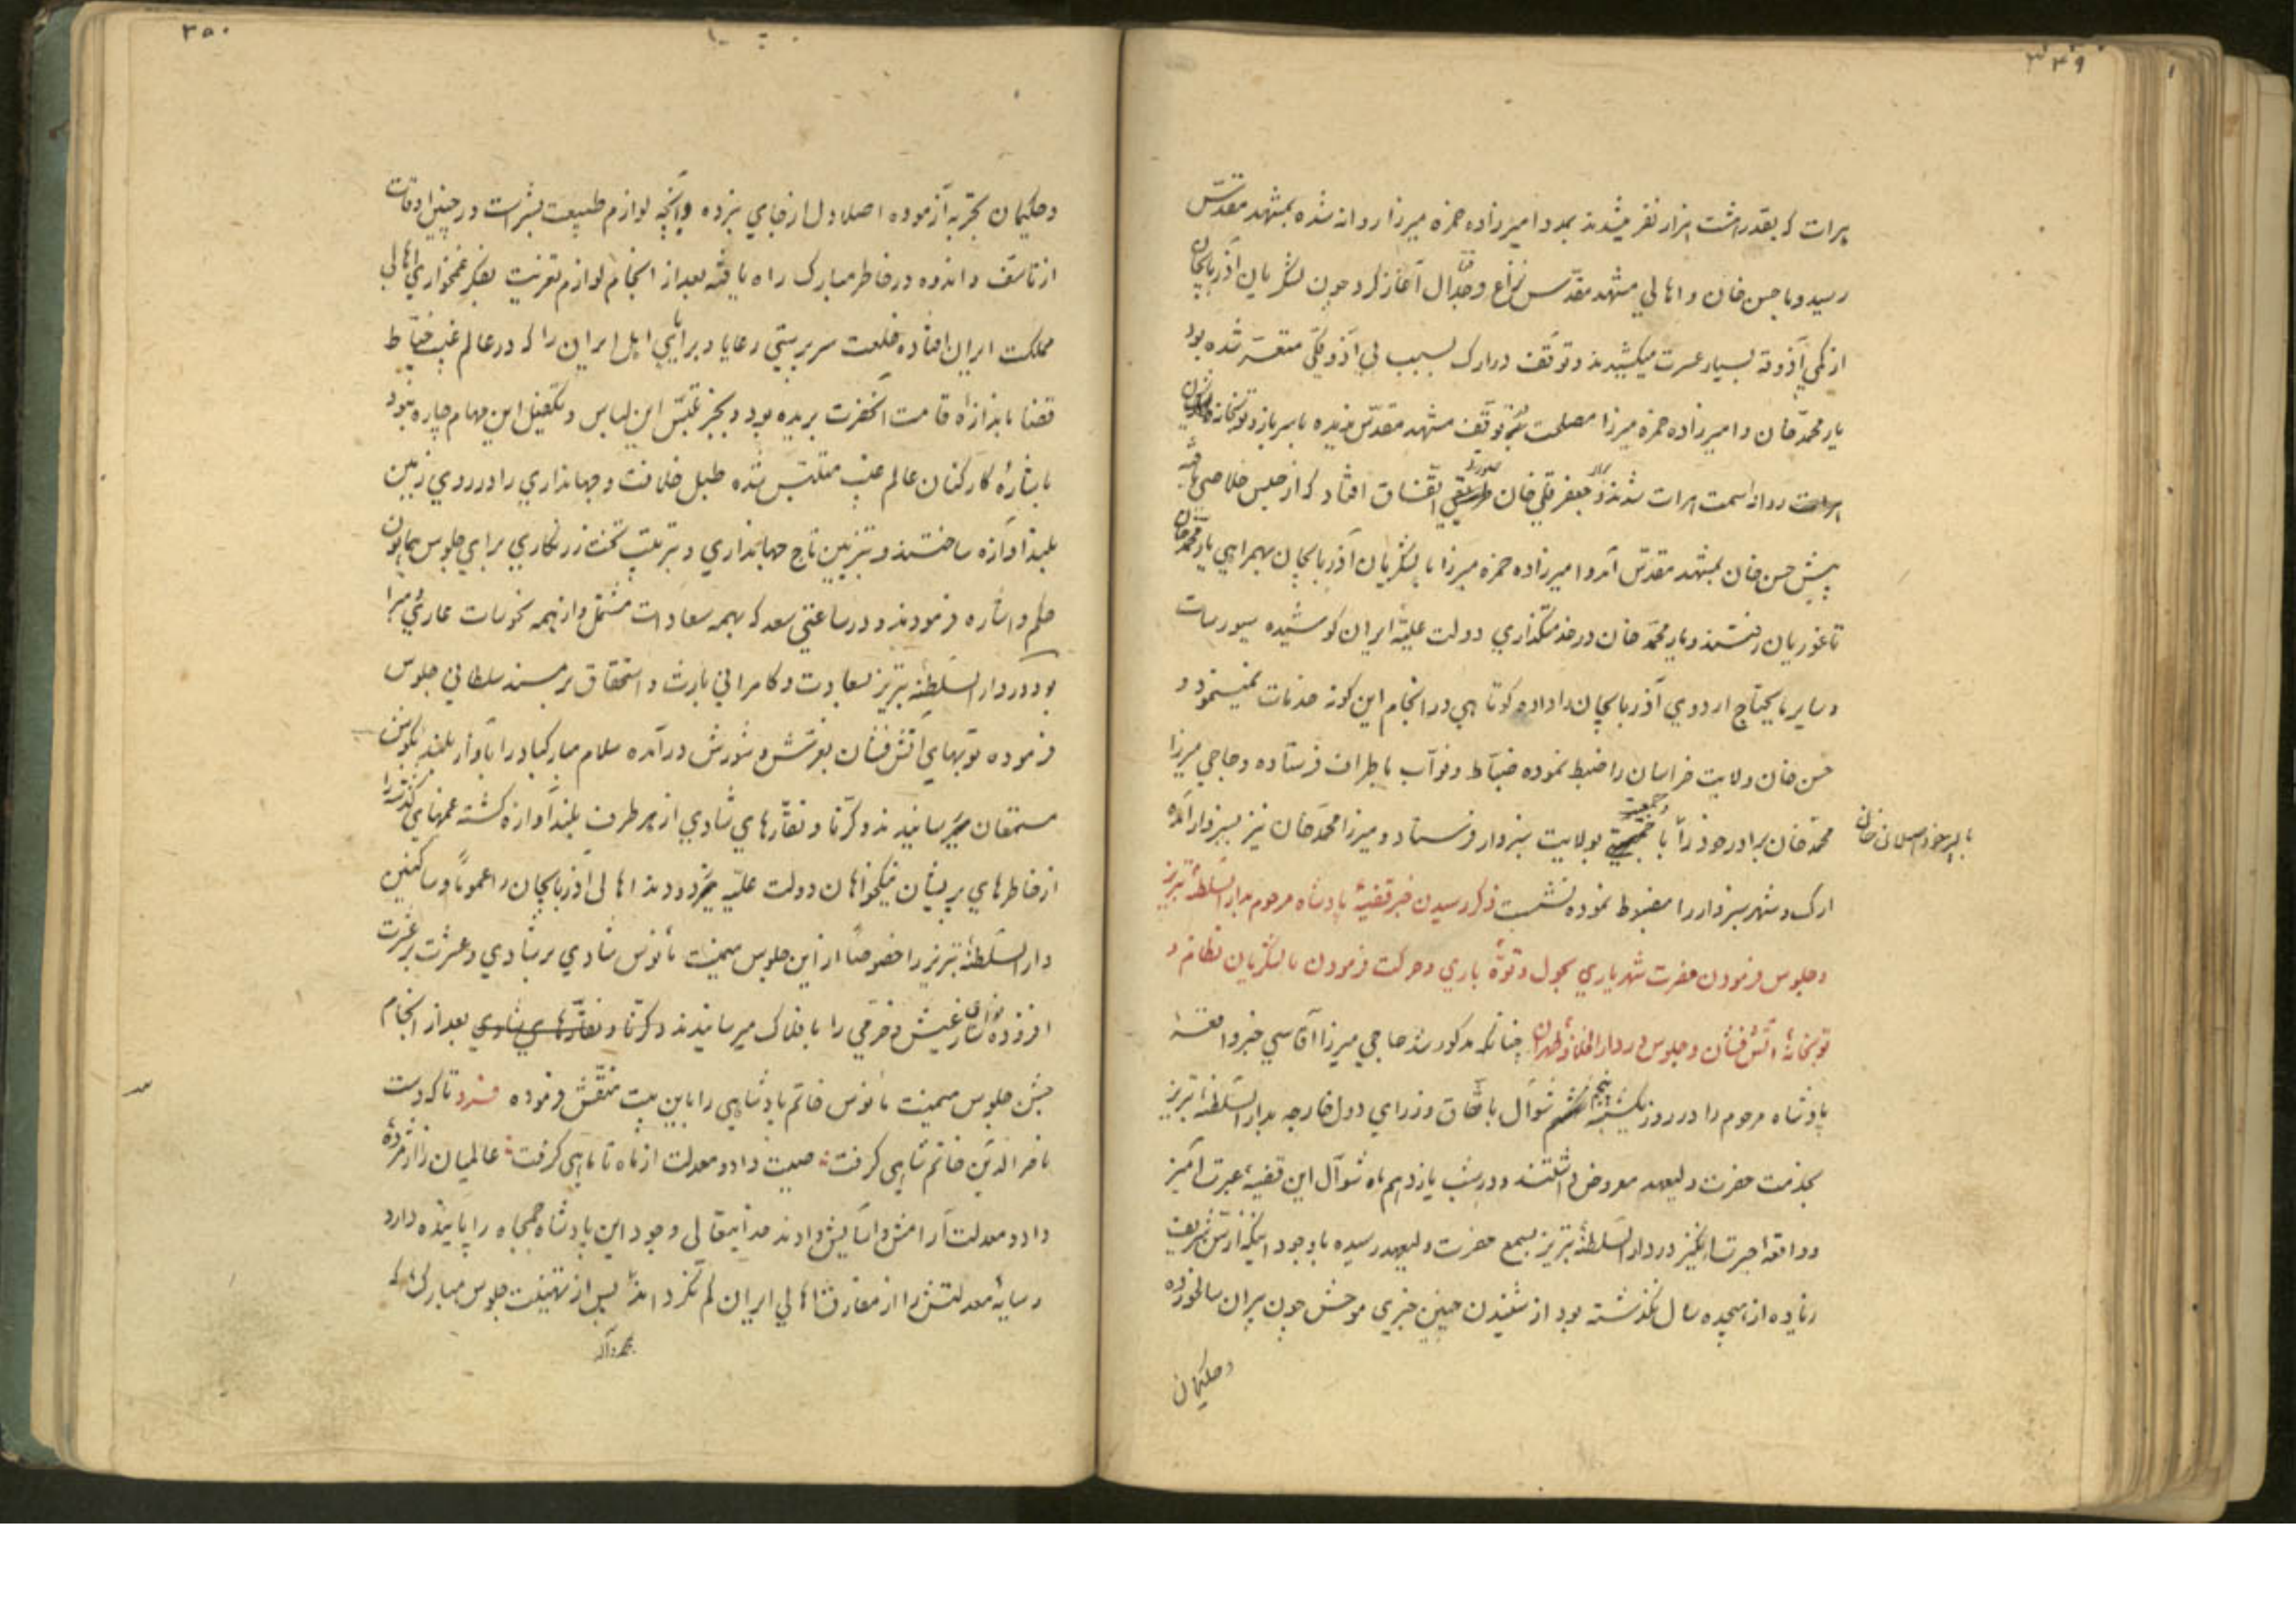 ۳۴۹
هرات که بقدر هشت هزار نفر میشدند بمدد امیرزاده حمزه میرزا روانه شده بمشهد مقدّس
رسید و با حسن خان و اهالي مشهد مقدّس نزاع و جدال آغاز کرد چون لشکریان آذربایجان
از کمي آذوقه بسیار عسرت میکشیدند و توقّف در ارک بسبب بي آذوقکي متعسّر شده بود
یار محمّد خان و امیرزاده حمزه میرزا مصلحت در توقّف مشهد مقدّس ندیده با سرباز و توپخانه
روانه سمت هرات شدند و جعفر قلي خان اتّفاق افتاد که از حبس خلاصي یافته
پیش حسن خان بمشهد مقدّس آمد و امیرزاده حمزه میرزا با لشکریان آذربایجان بهمراهي یار محمّد خان
تا غوریان رفتند و یار محمّد خان در خدمتکذاري دولت علیّهٔ ایران کوشیده سیورسات
و سایر مایحتاج اردوي آذربایجان را داده کوتاهي در انجام این کونه خدمات نمیمود و
حسن خان ولایت خراسان را ضبط نموده ضبّاط و نوّاب باطراف فرستاده و حاجي میرزا
محمّد خان برادر خود را با جمعیت بولایت سبزوار فرستاد و میرزا محمّد خان نیز بسبزوار آمده
با پسر خود اصلان خان
ارک و شهر سبزوار را مضبوط نموده نشست ذکر رسیدن خبر قضیهٔ پادشاه مرحوم بدار السّلطنهٔ تبریز
و جلوس فرمودن حضرت شهریاري بحول و قوّهٔ باري و حرکت فرمودن با لشکریان نظام و
توپخانهٔ آتش فشان و جلوس در دار الخلافهٔ طهران چنانکه مذکور شد حاجي میرزا آقاسي خبر واقعهٔ
پادشاه مرحوم را در روز یکشنبه پنجم شوّال باتّفاق وزراي دول خارجه بدار السّلطنهٔ تبریز
بخدمت حضرت ولیعهد معروض داشتند و در شب یازدهم ماه شوّال این قضیهٔ عبرت آمیز
و واقعهٔ حیرت انگیز در دار السّلطنهٔ تبریز بسمع حضرت ولیعهد رسیده با وجود اینکه از سنّ شریف
زیاده از هیجده سال نکذشته بود از شنیدن چنین خبري موحش چون پیران سالخورده
و حکیمان
۳۵۰
و حکیمان تجربه آزموده اصلا دل از جاي نبرده و آنچه لوازم طبیعت بشرات در چنین اوقات
از تاسّف و اندوه در خاطر مبارک راه یافته بعد از انجام لوازم تعزیت بفکر غمخواري اهالي
مملکت ایران افتاده خلعت سرپرستي رعایا و برایاي اهل ایران را که در عالم غیب خیّاط
قضا باندازهٔ قامت آنحضرت بریده بود و بجز تلبّس این لباس و تکفیل این مهام چاره نبود
باشارهٔ کارکنان عالم غیب متلبّس شده طبل خلافت و جهانداري را در روي زمین
بلند آوازه ساختند و بتزیین تاج جهانداري و ترتیب تخت زرنکاري براي جلوس همایون
حکم و اشاره فرمودند و در ساعتي سعد که بهمه سعادات مشتمل و از همه نحوسات عاري و مبرا
بود در دار السّلطنهٔ تبریز بسعادت و کامراني بارث و استحقاق بر مسند سلطاني جلوس
فرموده توپهاي آتش فشان بغرّش و شورش درآمده سلام مبارکباد را بآواز بلند بکوش
مستمعان میرسانیدند و کرنا و نقاره‌هاي شادي از هر طرف بلند آوازه کشته غمهاي کذشته را
از خاطرهاي پریشان نیکخواهان دولت علیّه میزدودند اهالي آذربایجان را عموماً و ساکنین
دار السّلطنهٔ تبریز را خصوصاً از این جلوس میمنت مانوس شادي بر شادي و عشرت بر عشرت
افزوده عیش و خرّمي را بافلاک میرسانیدند و کرنا و نقاره‌هاي شادي بعد از انجام
جشن جلوس میمنت مانوس خاتم پادشاهي را باین بیت منقّش فرموده فرد تا که دست
ناصر الدّین خاتم شاهي کرفت صیت داد و معدلت از ماه تا ماهي کرفت عالمیان را از مژدهٔ
داد و معدلت آرامش و آسایش دادند خدایتعالي وجود این پادشاه جمجاه را پاینده دارد
و سایهٔ معدلتش را از مفارق اهالي ایران کم نکرداند پس از تهنیت جلوس مبارک